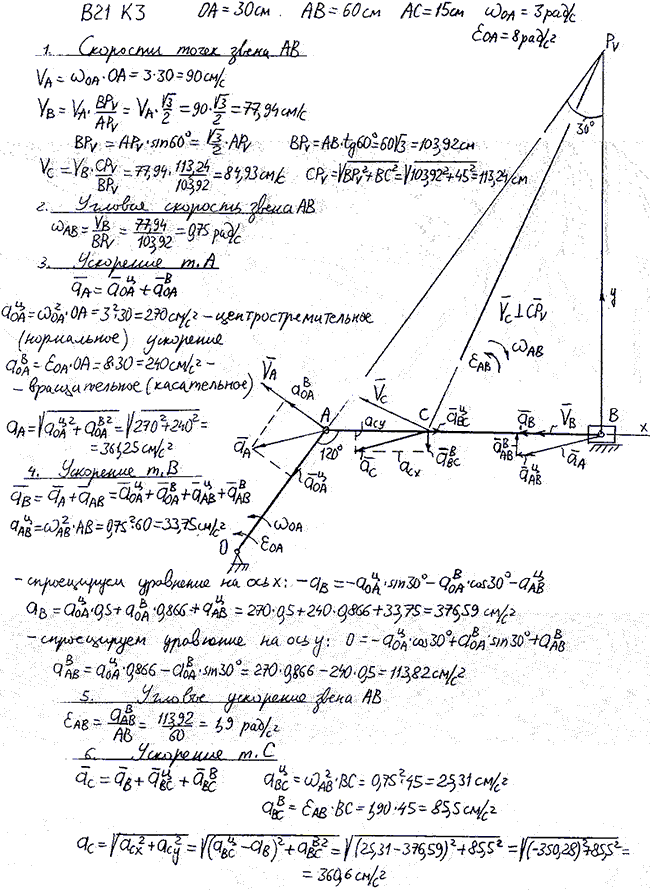 B21 K3 OA = 30см. AB = 60см AC = 15см ωOA = 3рад/с
εOA = 8рад/с²
1. Скорости точек звена AB
VA = ωOA·OA = 3·30 = 90см/с
VB = VA·BPV/APV = VA·√3/2 = 90·√3/2 = 77,94см/с
BPV = APV·sin60° = √3/2·APV BPV = AB·tg60° = 60√3 = 103,92см
VC = VB·CPV/BPV = 77,94·113,24/103,92 = 84,93см/с CPV = √BPV²+BC² = √103,92²+45² = 113,24см
2. Угловая скорость звена AB
ωAB = VB/BPV = 77,94/103,92 = 0,75 рад/с
3. Ускорение т.A
āA = āOAц + āOAв
aOAц = ωOA²·OA = 3²·30 = 270см/с² – центростремительное
(нормальное) ускорение
aOAв = εOA·OA = 8·30 = 240см/с² –
– вращательное (касательное)
aA = √aOAц²+aOAв² = √270²+240² =
= 361,25см/с²
4. Ускорение т.B
āB = āA + āAB = āOAц + āOAв + āABц + āABв
aABц = ωAB²·AB = 0,75²·60 = 33,75см/с²
PV
30°
y
V̄C ⊥ C̄PV
ωAB
εAB
V̄A
āOAв
V̄C
A
aCy
C
āBCц
āB
V̄B
B
x
āA
120°
āOAц
āC
aCx
āBCв
āABв
āABц
āA
O
ωOA
εOA
– спроецируем уравнение на ось x: –aB = –aOAц·sin30° – aOAв·cos30° – aABц
aB = aOAц·0,5 + aOAв·0,866 + aABц = 270·0,5 + 240·0,866 + 33,75 = 376,59 см/с²
– спроецируем уравнение на ось y: 0 = –aOAц·cos30° + aOAв·sin30° + aABв
aABв = aOAц·0,866 – aOAв·sin30° = 270·0,866 – 240·0,5 = 113,82см/с²
5. Угловое ускорение звена AB
εAB = aABв/AB = 113,92/60 = 1,9 рад/с²
6. Ускорение т.C
āC = āB + āBCц + āBCв aBCц = ωAB²·BC = 0,75²·45 = 25,31см/с²
aBCв = εAB·BC = 1,90·45 = 85,5см/с²
aC = √aCx²+aCy² = √(aBCц–aB)²+aBCв² = √(25,31–376,59)²+85,5² = √(–350,28)²+85,5² =
= 360,6см/с²